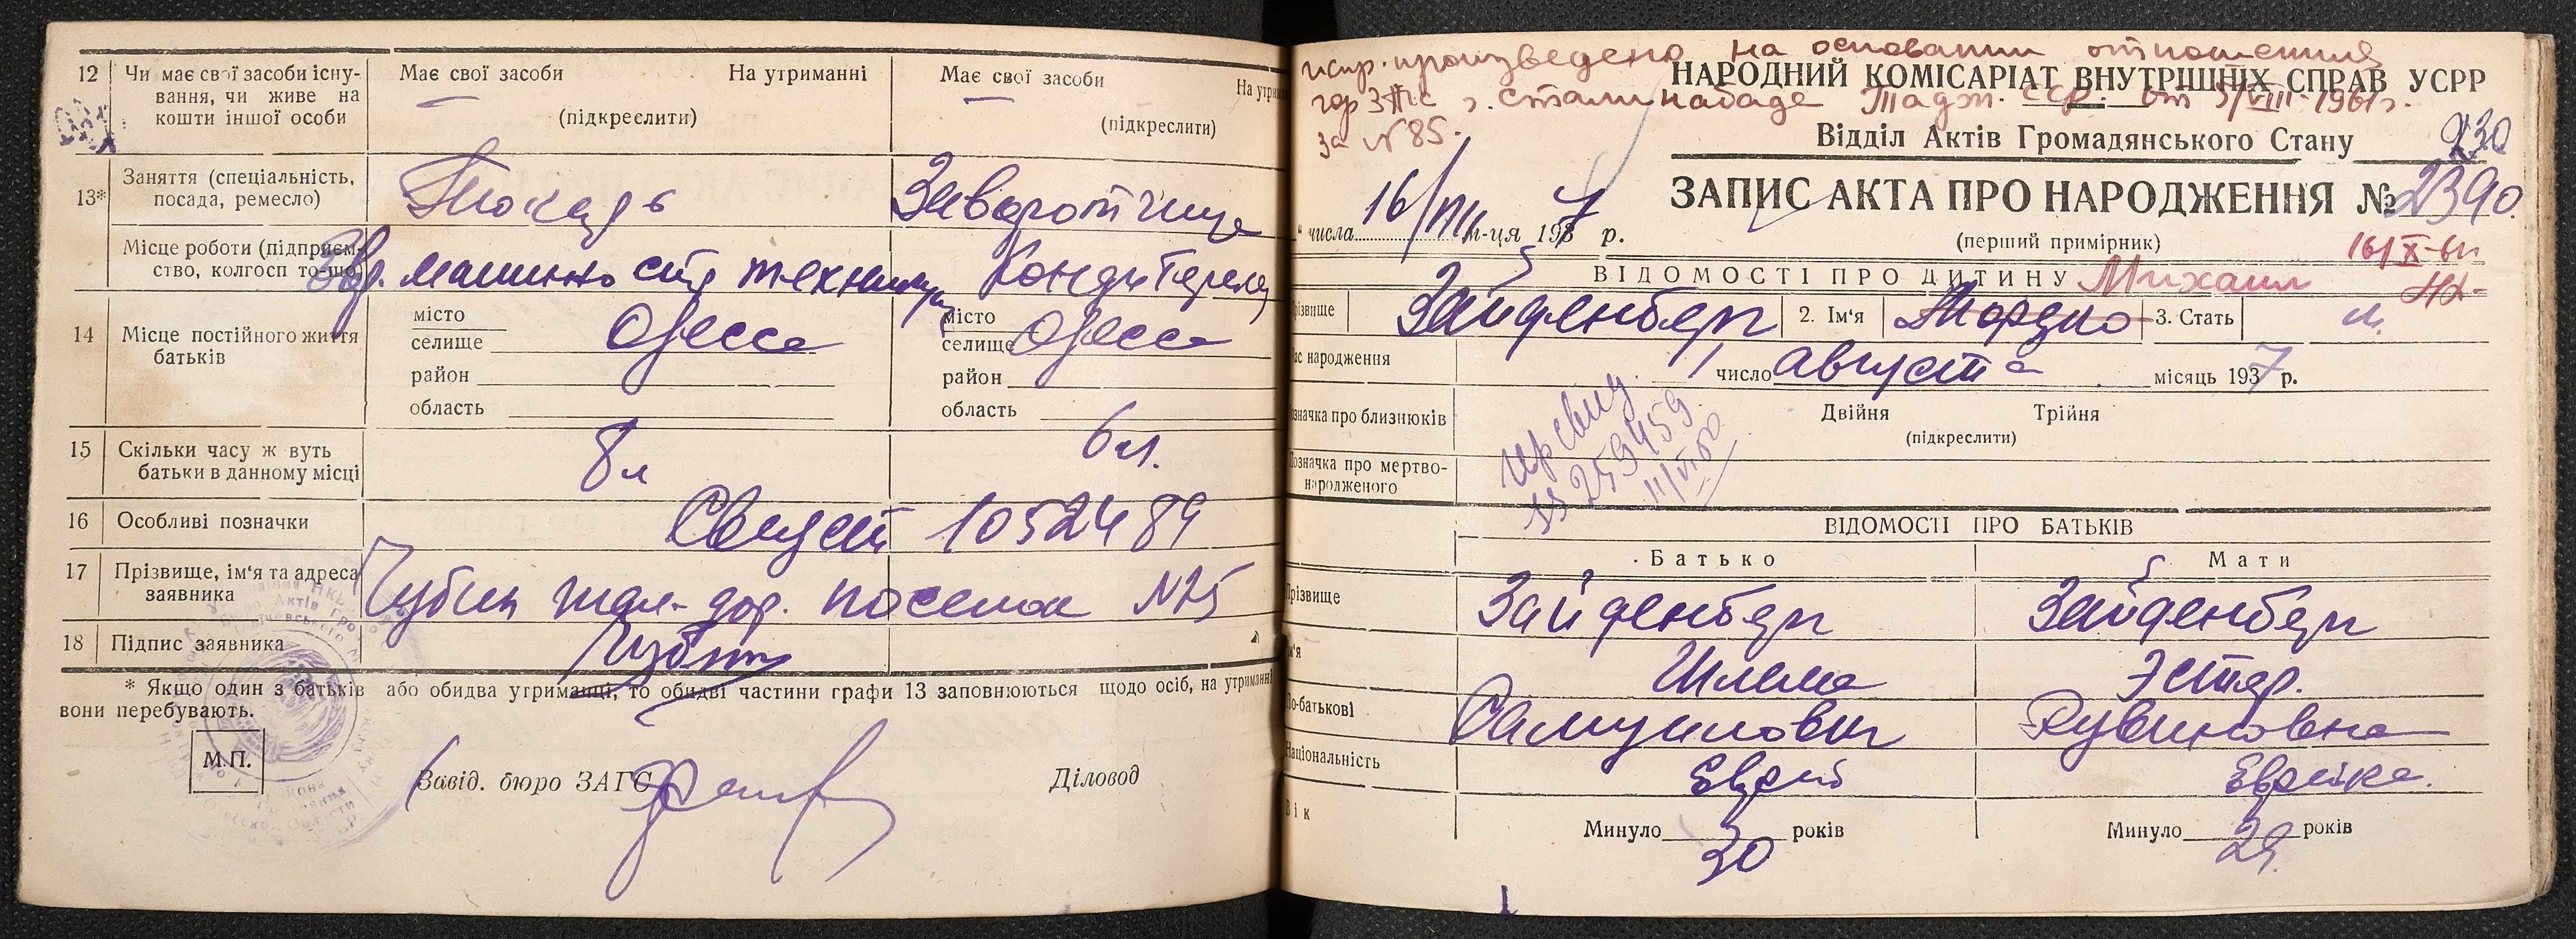 12 Чи має свої засоби існу-
вання, чи живе на
кошти іншої особи
Має свої засоби На утриманні
(підкреслити)
Має свої засоби На утри
(підкреслити)
13* Заняття (спеціальність,
посада, ремесло)
Токарь
Заворотчица
Місце роботи (підприєм-
ство, колгосп то-що)
машино стр техникум
14 Місце постійного життя
батьків
місто
селище Одесса
район
область
місто
селище Одесса
район
область
15 Скільки часу ж вуть
батьки в данному місці
8 л
6 л.
16 Особливі позначки
Свидет 1052489
17 Прізвище, ім'я та адреса
заявника
Чубин жел-дор. поселок N25
18 Підпис заявника
Чубин
* Якщо один з батьків або обидва утриманці, то обидві частини графи 13 заповнюються щодо осіб, на утриманні
вони перебувають.
М.П.
Завід. бюро ЗАГС
Діловод
испр. произведено на основании отношения
гор ЗАГС г. Сталинабаде Тадж. ССР. от 5/VIII-1961г.
за N 85.
НАРОДНИЙ КОМІСАРІАТ ВНУТРІШНІХ СПРАВ УСРР
Відділ Актів Громадянського Стану
230
ЗАПИС АКТА ПРО НАРОДЖЕННЯ № 2390.
16/VIII
" числа м-ця 1937 р.
(перший примірник)
16/X-61
ВІДОМОСТІ ПРО ДИТИНУ Михаил
різвище Зайденберг 2. Ім'я Мордко 3. Стать м.
ас народження 1 число августа місяць 1937 р.
значка про близнюків
Двійня Трійня
(підкреслити)
означка про мертво-
народженого
259459
11/VI 60
ВІДОМОСТІ ПРО БАТЬКІВ
Батько Мати
різвище Зайденберг Зайденберг
м'я Шлема Эстер.
о-батькові Самуилович Рувиновна
Національність Еврей Еврейка.
Вік Минуло 30 років Минуло 29 років
30